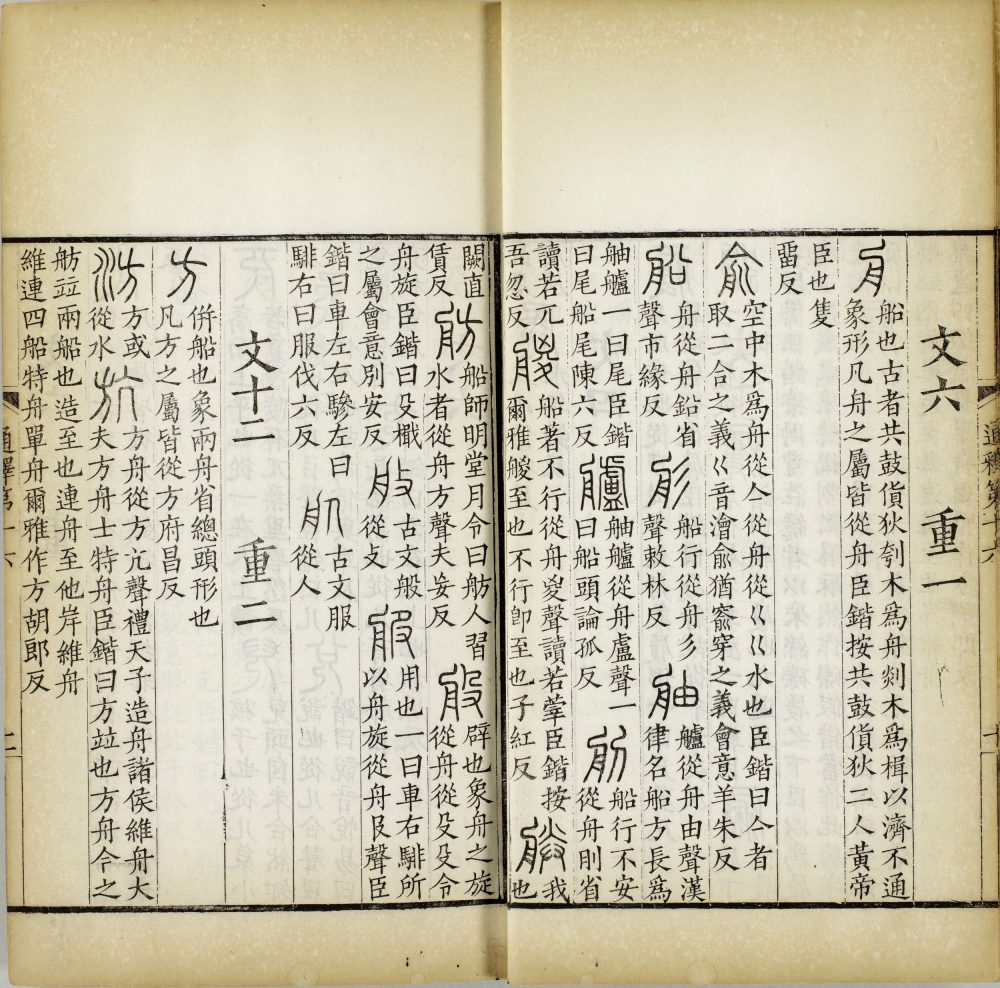 文六 重一
舟 船也古者共鼓貨狄刳木爲舟剡木爲楫以濟不通
象形凡舟之屬皆從舟臣鍇按共鼓貨狄二人黃帝
臣也隻
㽞反
俞 空中木爲舟從亼從舟從巜巜水也臣鍇曰亼者
取二合之義巜音澮俞猶窬穿之義會意羊朱反
船 舟從舟鉛省
聲市緣反
彤 船行從舟彡
聲敕林反
舳 艫從舟由聲漢
律名船方長爲
舳艫一曰尾臣鍇
曰尾船尾陳六反
艫 舳艫從舟盧聲一
曰船頭論孤反
船行不安
從舟刖省
讀若兀
吾忽反
艐 船著不行從舟㚇聲讀若䔿臣鍇按
爾雅艐至也不行卽至也子紅反
朕 我
也
通釋第十六
闕直
賃反
舫 船師明堂月令曰舫人習
水者從舟方聲夫妄反
般 辟也象舟之旋
從舟從殳殳令
舟旋臣鍇曰殳檝
之屬會意別安反
古文般
從攴
服 用也一曰車右騑所
以舟旋從舟𠬝聲臣
鍇曰車左右驂左曰
騑右曰服伐六反
古文服
從人
文十二 重二
方 併船也象兩舟省總頭形也
凡方之屬皆從方府昌反
汸 方或
從水
斻 方舟從方亢聲禮天子造舟諸侯維舟大
夫方舟士特舟臣鍇曰方竝也方舟今之
舫竝兩船也造至也連舟至他岸維舟
維連四船特舟單舟爾雅作方胡郎反
通釋第十六